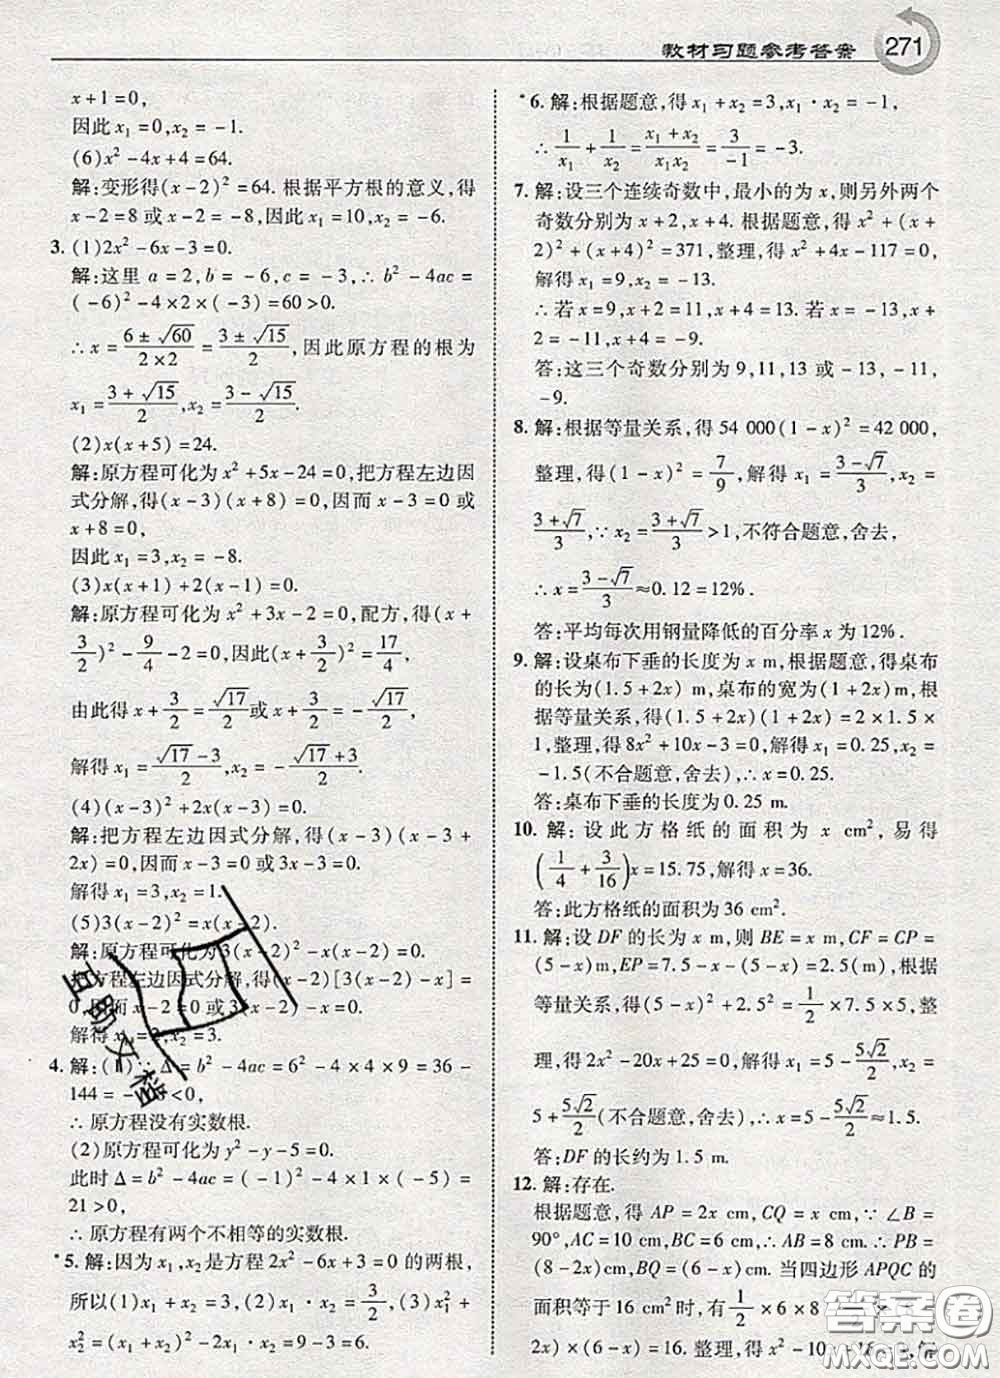 教材习题参考答案 271
x+1=0,
因此x₁=0,x₂=-1.
(6)x²-4x+4=64.
解:变形得(x-2)²=64.根据平方根的意义,得
x-2=8或x-2=-8,因此x₁=10,x₂=-6.
3.(1)2x²-6x-3=0.
解:这里a=2,b=-6,c=-3,∴b²-4ac=
(-6)²-4×2×(-3)=60>0.
∴x=(6±√60)/(2×2)=(3±√15)/2,因此原方程的根为
x₁=(3+√15)/2,x₂=(3-√15)/2.
(2)x(x+5)=24.
解:原方程可化为x²+5x-24=0,把方程左边因
式分解,得(x-3)(x+8)=0,因而x-3=0或
x+8=0,
因此x₁=3,x₂=-8.
(3)x(x+1)+2(x-1)=0.
解:原方程可化为x²+3x-2=0,配方,得(x+
3/2)²-9/4-2=0,因此(x+3/2)²=17/4,
由此得x+3/2=√17/2或x+3/2=-√17/2,
解得x₁=(√17-3)/2,x₂=-(√17+3)/2.
(4)(x-3)²+2x(x-3)=0.
解:把方程左边因式分解,得(x-3)(x-3+
2x)=0,因而x-3=0或3x-3=0.
解得x₁=3,x₂=1.
(5)3(x-2)²=x(x-2).
解:原方程可化为3(x-2)²-x(x-2)=0.
把方程左边因式分解,得(x-2)[3(x-2)-x]=
0,因而x-2=0或3(x-2)-x=0.
解得x₁=2,x₂=3.
4.解:(1)∵Δ=b²-4ac=6²-4×4×9=36-
144=-<0,
∴原方程没有实数根.
(2)原方程可化为y²-y-5=0.
此时Δ=b²-4ac=(-1)²-4×1×(-5)=
21>0,
∴原方程有两个不相等的实数根.
*5.解:因为x₁,x₂是方程2x²-6x+3=0的两根,
所以(1)x₁+x₂=3,(2)x₁·x₂=3/2,(3)x₁²+
x₂²=(x₁+x₂)²-2x₁x₂=3²-2×3/2=6.
*6.解:根据题意,得x₁+x₂=3,x₁·x₂=-1,
∴1/x₁+1/x₂=(x₁+x₂)/(x₁x₂)=3/(-1)=-3.
7.解:设三个连续奇数中,最小的为x,则另外两个
奇数分别为x+2,x+4.根据题意,得x²+(x+
2)²+(x+4)²=371,整理,得x²+4x-117=0,
解得x₁=9,x₂=-13.
∴若x=9,x+2=11,x+4=13.若x=-13,x+
2=-11,x+4=-9.
答:这三个奇数分别为9,11,13或-13,-11,
-9.
8.解:根据等量关系,得54 000(1-x)²=42 000,
整理,得(1-x)²=7/9,解得x₁=(3-√7)/3,x₂=
(3+√7)/3,∵x₂=(3+√7)/3>1,不符合题意,舍去,
∴x=(3-√7)/3≈0.12=12%.
答:平均每次用钢量降低的百分率x为12%.
9.解:设桌布下垂的长度为x m,根据题意,得桌布
的长为(1.5+2x) m,桌布的宽为(1+2x)m,根
据等量关系,得(1.5+2x)(1+2x)=2×1.5×
1,整理,得8x²+10x-3=0,解得x₁=0.25,x₂=
-1.5(不合题意,舍去),∴x=0.25.
答:桌布下垂的长度为0.25 m.
10.解:设此方格纸的面积为x cm²,易得
(1/4+3/16)x=15.75,解得x=36.
答:此方格纸的面积为36 cm².
11.解:设DF的长为x m,则BE=x m,CF=CP=
(5-x)m,EP=7.5-x-(5-x)=2.5(m),根据
等量关系,得(5-x)²+2.5²=1/2×7.5×5,整
理,得2x²-20x+25=0,解得x₁=5-5√2/2,x₂=
5+5√2/2(不合题意,舍去),∴x=5-5√2/2≈1.5.
答:DF的长约为1.5 m.
12.解:存在.
根据题意,得AP=2x cm,CQ=x cm,∵∠B=
90°,AC=10 cm,BC=6 cm,∴AB=8 cm.∴PB=
(8-2x)cm,BQ=(6-x)cm.当四边形APQC的
面积等于16 cm²时,有1/2×6×8
2x)×(6-x)=16.整理,得x²-10
互助文档
答案圈
MXQE.COM